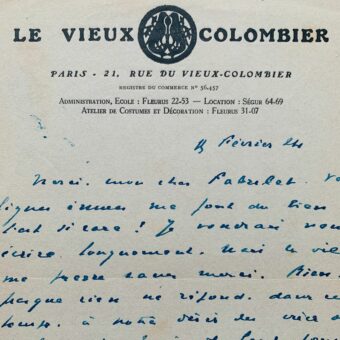 LE VIEUX COLOMBIER
PARIS - 21, RUE DU VIEUX-COLOMBIER
REGISTRE DU COMMERCE N° 56.457
ADMINISTRATION, ECOLE : FLEURUS 22-53 — LOCATION : SÉGUR 64-69
ATELIER DE COSTUMES ET DÉCORATION : FLEURUS 31-07
Février 24
Merci, mon cher Fabulet. Vo
lignes émues me font du bien
si rare ! Je voudrais vous
écrire longuement. Mais la
me presse sans merci. Rien,
parce que rien ne répond, dans ce
temps, à notre désir de